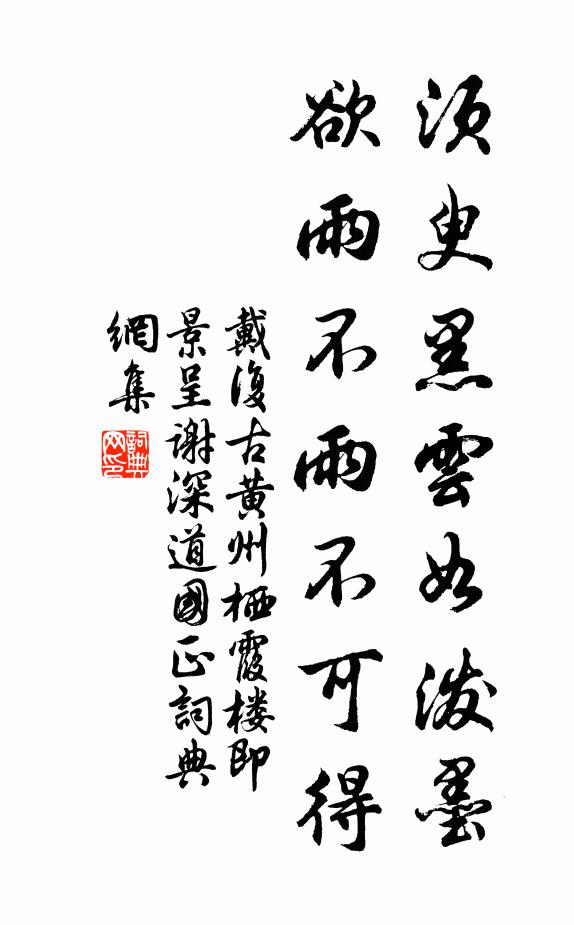 須臾黑雲如潑墨
欲雨不雨不可得
戴復古黃州栖霞楼即
景呈謝深道國正詞典
網集
詞典
网印